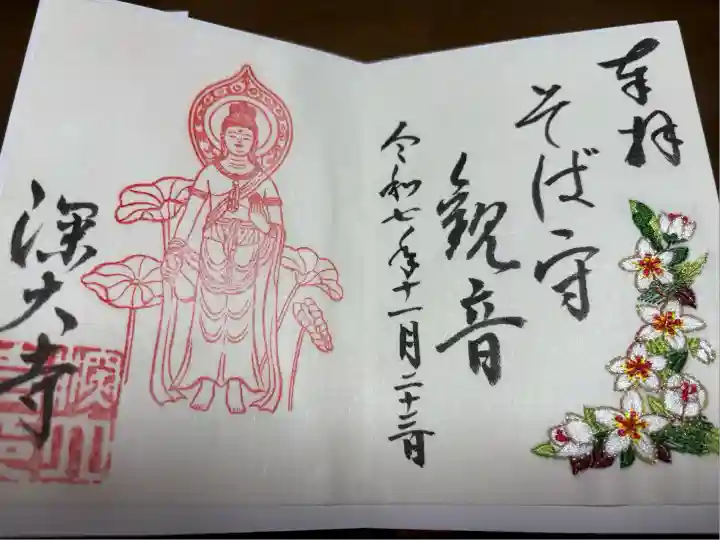 奉拝
そば守
観音
令和七年十一月二十二日
深大寺